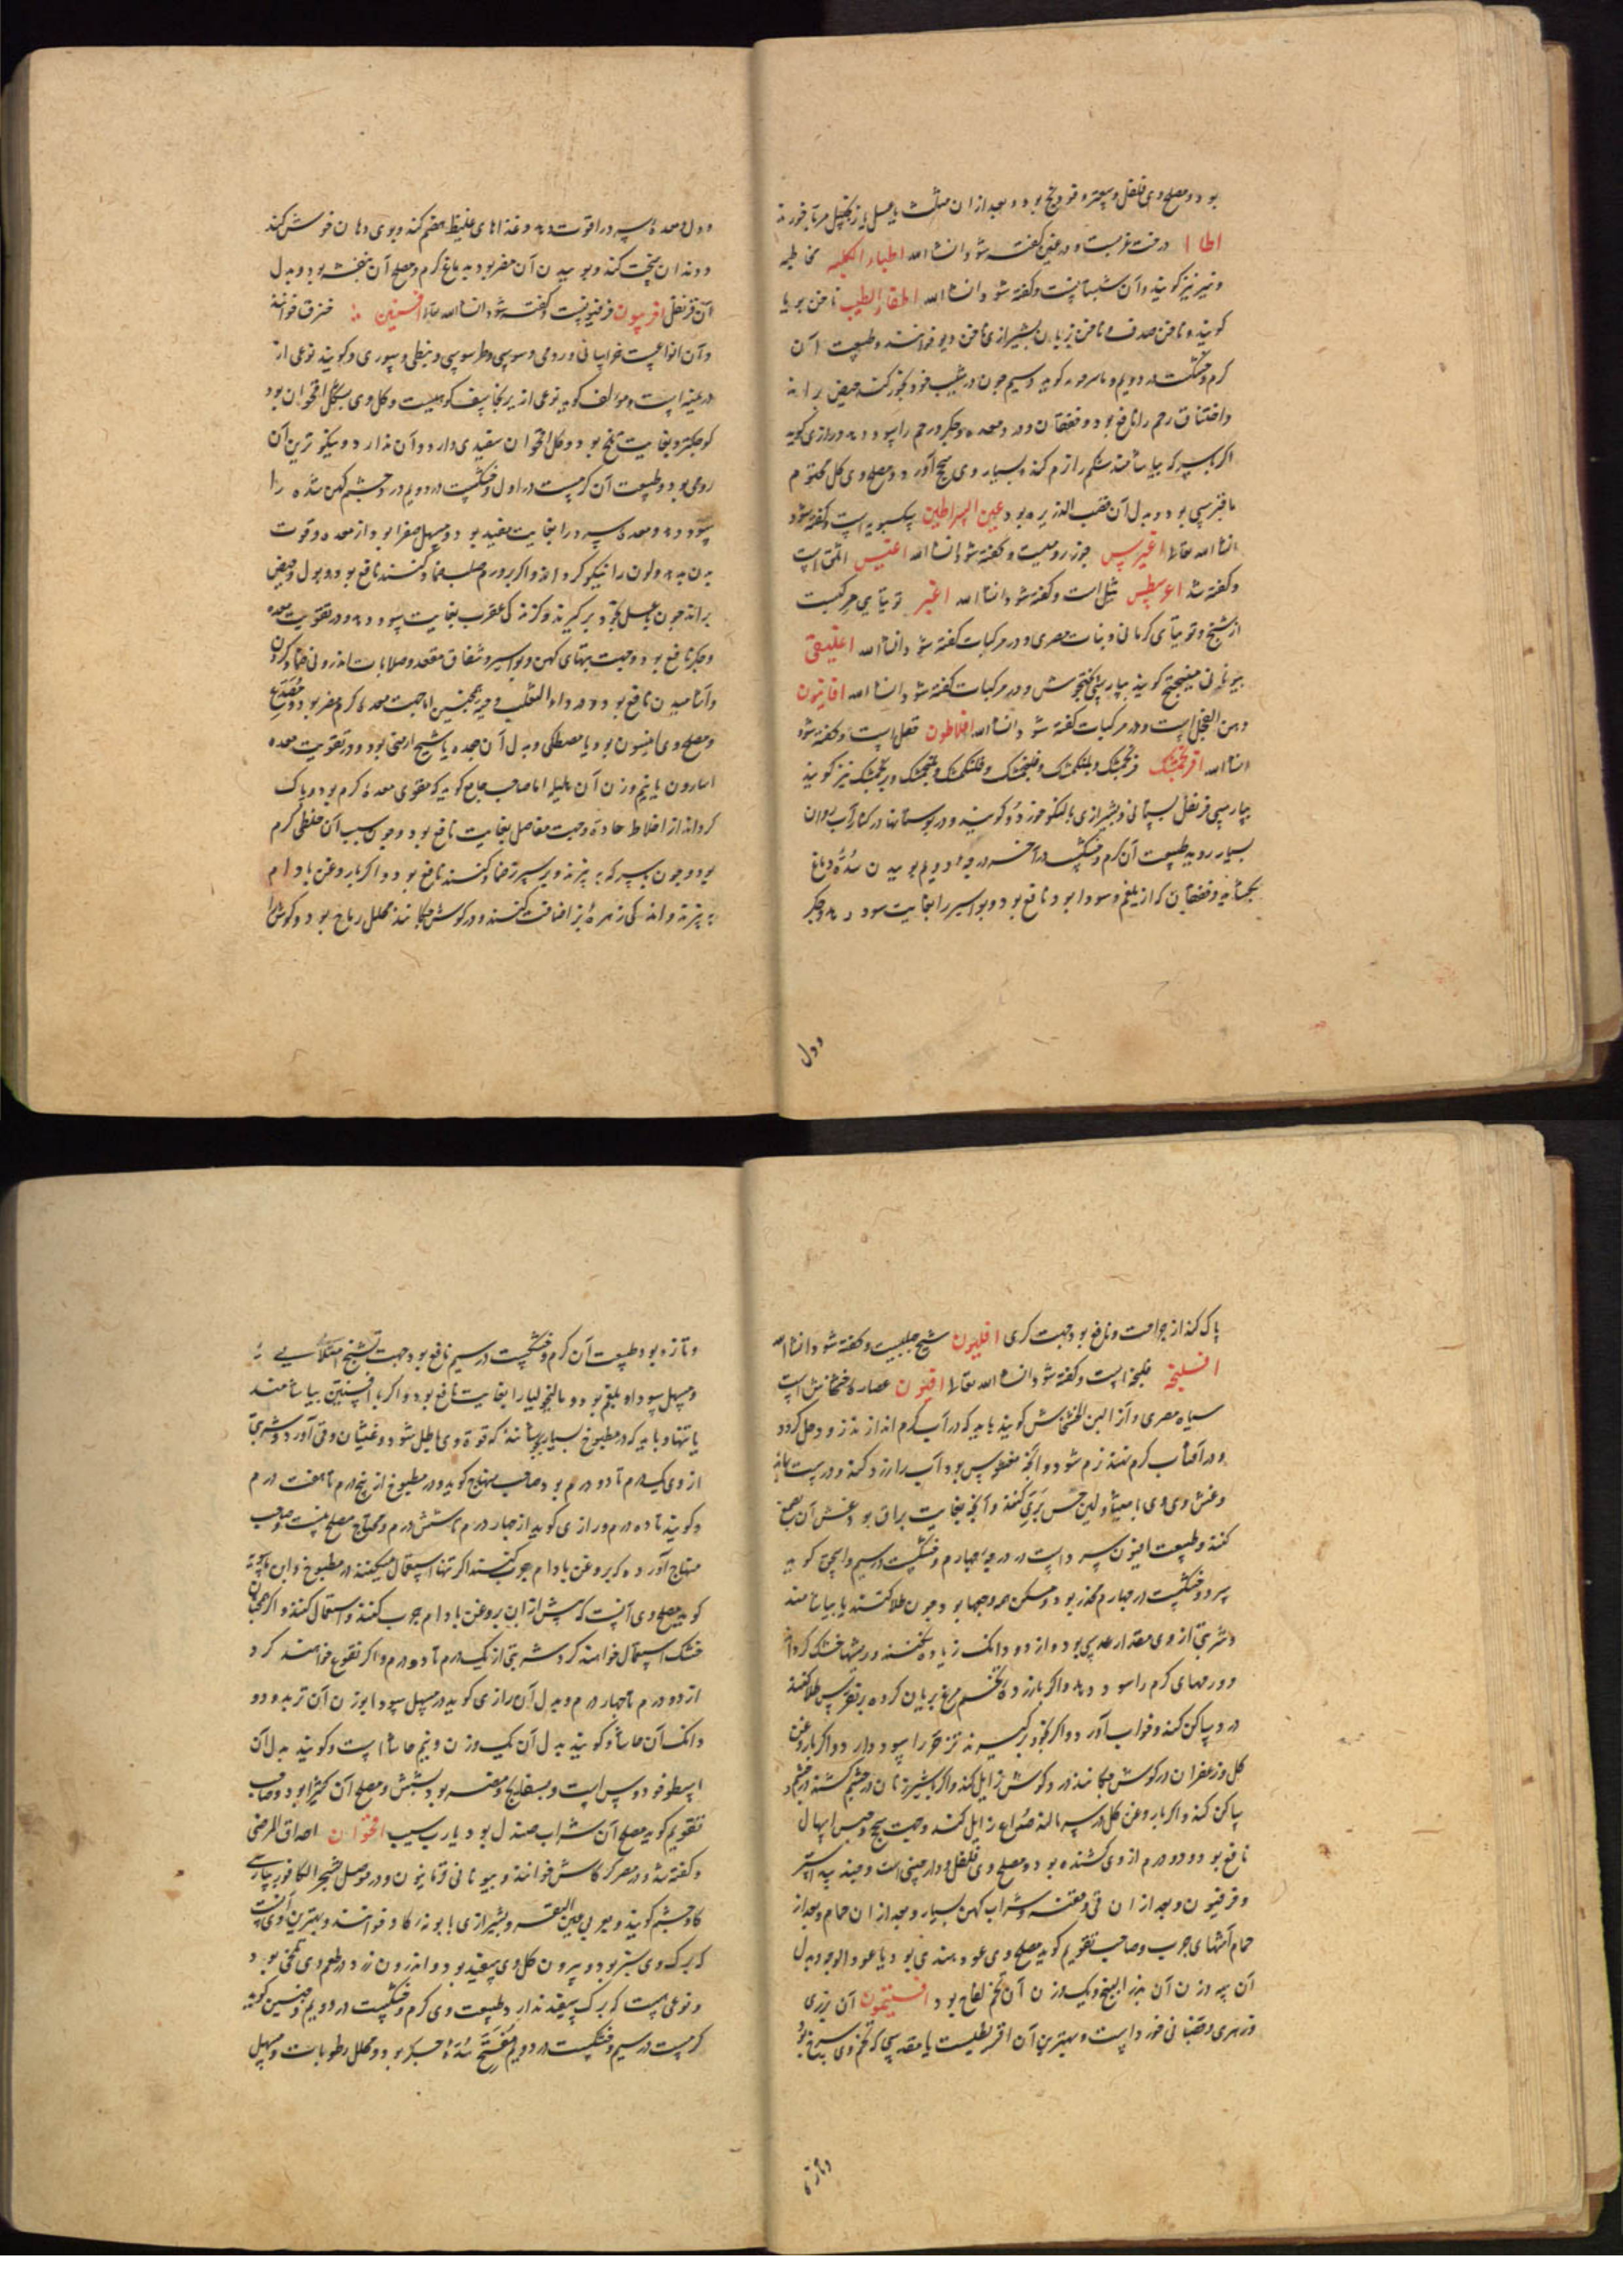 بود و مصلح وی فلفل و سعتر و فودنج بود و بعد از ان مثلث یا عسل یا زنجبیل مربا خورند
اطا ا درخت غربست و در غین گفته شود انشا الله اطباء الکلبه مخاطیه
و نیز گویند و آن سبستانست و گفته شود انشا الله اظفار الطیب ناخن بریا
گویند و ناخن صدف و ناخن پریان بشیرازی ناخن دیو خوانند و طبیعت آن
گرم و خشکست در دویم و ماسرجویه گوید در سیم چون در شیب خود بخور کنند حیض براند
و اختناق رحم را نافع بود و خفقان و درد معده و جگر و رحم را سود دهد و رازی گوید
اگر با سرکه بیاشامند شکم را نرم کند و بسیار وی سحج آورد و مصلح وی گل مختوم
یا قبرسی بود و بدل آن قصب الذریره بود عین السراطین سکسبویه است و گفته شود
انشا الله تعالی اغیرس جوز رومیست و گفته شود انشا الله اغنیس اثلق است
و گفته شد اغرسطس ثیل است و گفته شود انشا الله اغبر توتیای مرکبست
از شنج و توتیای کرمانی و نبات مصری و در مرکبات گفته شود انشا الله اغلیقی
بیونانی میفختج گویند بپارسی پختجوش و در مرکبات گفته شود انشا الله افانیون
دهن الفجل است و در مرکبات گفته شود انشا الله افلاطون مقل است و گفته شود
انشا الله افرنجمشک فرنجمشک و بلنکمشک و فلنجمشک و فلنکمشک و بنجمشک و برنجمشک نیز گویند
بپارسی قرنفل بستانی و بشیرازی بالنکو خود رو گویند و در بوستانها در کنار آب روان
بسیار روید طبیعت آن گرم و خشکست در آخر درجه دویم بوییدن سده دماغ
بگشاید و خفقان که از بلغم و سودا بود نافع بود و بواسیر را بغایت سود دهد و جگر
و دل
و دل و معده سرد را قوت دهد و غذاهای غلیظ هضم کند و بوی دهان خوش کند
و دندان سخت کند و بوییدن آن مضر بود به دماغ گرم و مصلح آن بنفشه بود و بدل
آن قرنفل افربیون فرفیونست و گفته شود انشا الله تعالی افسنتین خترق خوانند
و آن انواعست خراسانی و رومی و سوسی و طرسوسی و نبطی و سوری و گویند نوعی از
درمنه است و مولف گوید نوعی از برنجاسف کوهیست و گل وی بشکل اقحوان بود
کوچکتر و بغایت تلخ بود و گل اقحوان سفیدی دارد و آن ندارد و نیکوترین آن
رومی بود و طبیعت آن گرمست در اول و خشکست در دویم درد چشم کهن شده را
سود دهد و معده سرد را بغایت مفید بود و مسهل صفرا بود از معده و قوت
بدن بدهد و لون را نیکو گرداند و اگر بر ورم صلب ضماد کنند نافع بود و بول و حیض
براند چون با عسل بخود برگیرند و گزندگی عقرب بغایت سود دهد و در تقویت معده
و جگر نافع بود و جهت تبهای کهن و بواسیر و شقاق مقعد و صلابات اندرونی ضماد کردن
و آشامیدن نافع بود و در داء الثعلب و حیه همچنین اما جهت معده گرم مضر بود و مصدع
و مصلح وی انیسون بود یا مصطکی و بدل آن جعده یا شیح ارمنی بود و در تقویت معده
اسارون با نیم وزن آن هلیله اما صاحب جامع گوید که مقوی معده گرم بود و پاک
گرداند از اخلاط حاده و جهت مفاصل بغایت نافع بود و چون سبب آن خلطی گرم
بود و چون بسرکه بپزند و بر سپرز ضماد کنند نافع بود و اگر با روغن بادام
بپزند و اندکی زهره بز اضافت کنند و در گوش چکانند محلل ریاح بود و گوش را
پاک کند از جراحت و نافع بود جهت کری افلیون شیح جبلیست و گفته شود انشا الله
افسلیخه فلیخه است و گفته شود انشا الله تعالی افیون عصاره خشخاش است
سیاه مصری و آنرا لبن الخشخاش گویند باید که در آب گرم اندازند زود حل گردد
و در آفتاب گرم نهند نرم شود و آنچه مغشوش بود آب را زرد کند و درست نماند
و غش وی بمامیثا و لبن خس بری کنند و آنچه بغایت براق بود غش آن بصمغ
کنند و طبیعت افیون سرد است در درجه چهارم و خشکست در سیم و اسحق گوید
سرد و خشکست در چهارم مخدر بود و مسکن همه وجعها بود چون طلا کنند یا بیاشامند
و شربتی از وی مقدار عدسی بود و از دو دانک زیاده نکنند و ریشها خشک گرداند
و ورمهای گرم را سود دهد و اگر با زرده تخم مرغ بریان کرده بر نقرس طلا کنند
درد ساکن کند و خواب آورد و اگر بخود برگیرند تزحر را سود دارد و اگر با روغن
گل و زعفران در گوش چکانند درد گوش زایل کند و اگر با شیر زنان در چشم کشند درد چشم
ساکن کند و اگر با روغن گل در سر مالند صداع زایل کند و جهت سحج و حبس اسهال
نافع بود و دو درم از وی کشنده بود و مصلح وی فلفل و دارصینی است و جندبیدستر
و فرفیون و بعد از ان قی و حقنه و شراب کهن بسیار و بعد از ان حمام و بعد از
حمام آشهای چرب و صاحب تقویم گوید مصلح وی عود هندی بود یا عود الوج و بدل
آن سه وزن آن بزر البنج و یک وزن آن تخم لفاح بود افتیمون آن بزری
و زهری و قضبانی خورد است و بهترین آن اقریطیست یا مقدسی که تخم وی سرخ بود
و تازه
و تازه بود و طبیعت آن گرم و خشکست در سیم نافع بود جهت تشنج امتلایی
و مسهل سودا و بلغم بود و مالیخولیا را بغایت نافع بود و اگر با افسنتین بیاشامند
یا تنها و باید که در مطبوخ بسیار نجوشانند که قوة وی باطل شود و غثیان و قی آورد و شربتی
از وی یک درم تا دو درم بود و صاحب منهاج گوید در مطبوخ از پنج درم تا هفت درم
و گویند تا ده درم و رازی گوید از چهار درم تا شش درم و محتاج مصلح نیست و صاحب
منهاج آورده که بروغن بادام چرب کنند اگر تنها استعمال میکنند در مطبوخ و ابن ماسویه
گوید مصلح وی آنست که پیش از ان بروغن بادام چرب کنند و استعمال کنند و اگر همچنان
خشک استعمال خواهند کرد شربتی از یک درم تا دو درم و اگر نقوع خواهند کرد
از دو درم تا چهار درم و بدل آن رازی گوید در مسهل سودا بوزن آن تربد و دو
دانک آن حاشا و گویند بدل آن یک وزن و نیم حاشا است و گویند بدل آن
اسطوخودوس است و بسفایج و مضر بود بشش و مصلح آن کثیرا بود و صاحب
تقویم گوید مصلح آن شراب صندل بود یا رب سیب اقحوان احداق المرضی
و گفته شد و در مصر کرکاش خوانند و بیونانی فرثانیون و در موصل شجر الکافور بپارسی
کاوچشم گویند و بعربی عین البقر و بشیرازی بابونه کاو خوانند و بهترین وی آنست
که برک وی سبز بود و بیرون گل وی سفید بود و اندرون زرد و در طعم وی تلخی بود
و نوعی هست که برک سفید ندارد و طبیعت وی گرم و خشکست در دویم و حنین گوید
گرمست در سیم و خشکست در دویم مفتح سده جگر بود و محلل رطوبات و مسهل